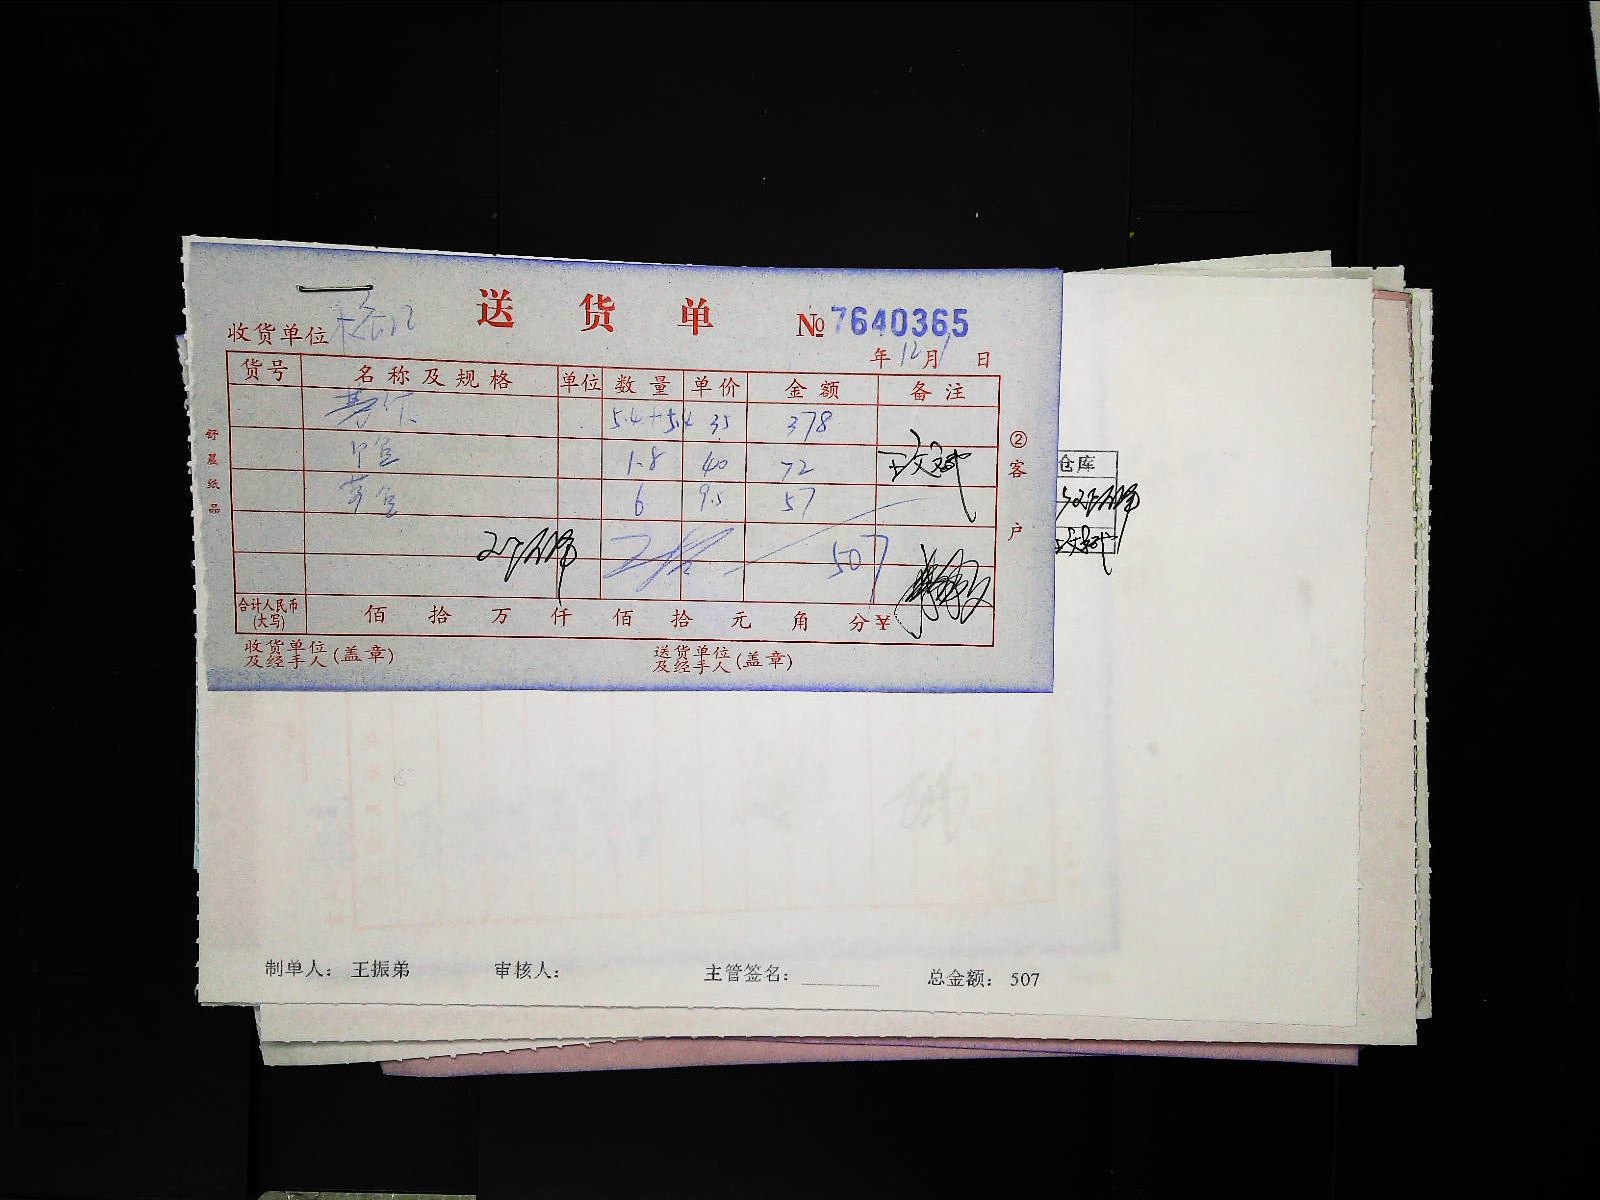 送货单 № 7640365
收货单位
年 12 月 1 日
货号 名称及规格 单位 数量 单价 金额 备注
5.4+5.4 35 378
1.8 40 72
6 9.5 57
507
合计人民币(大写) 佰 拾 万 仟 佰 拾 元 角 分 ¥
收货单位及经手人(盖章) 送货单位及经手人(盖章)
舒晨纸品
②客户
仓库
制单人: 王振弟 审核人: 主管签名: 总金额: 507